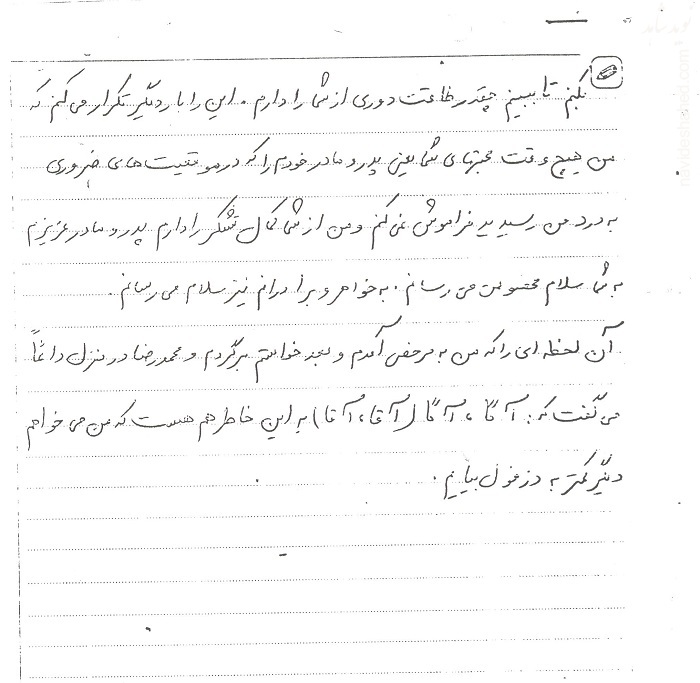 بکنم تا ببینم چقدر طاقت دوری از شما را دارم. این را بار دیگر تکرار می کنم که
من هیچ وقت محبتهای شما یعنی پدر و مادر خودم را که در موقعیت های ضروری
به درد من رسیدید فراموش نمی کنم و من از شما کمال تشکر را دارم پدر و مادر عزیزم
به شما سلام مخصوص می رسانم. به خواهر و برادرانم نیز سلام می رسانم.
آن لحظه ای را که من به مرخصی آمدم و بعد خواستم برگردم و محمدرضا در منزل دائماً
می گفت که: آگا، آگا (آقا، آقا) به این خاطر هم هست که من می خواهم
دیگر کمتر به دزفول بیایم.